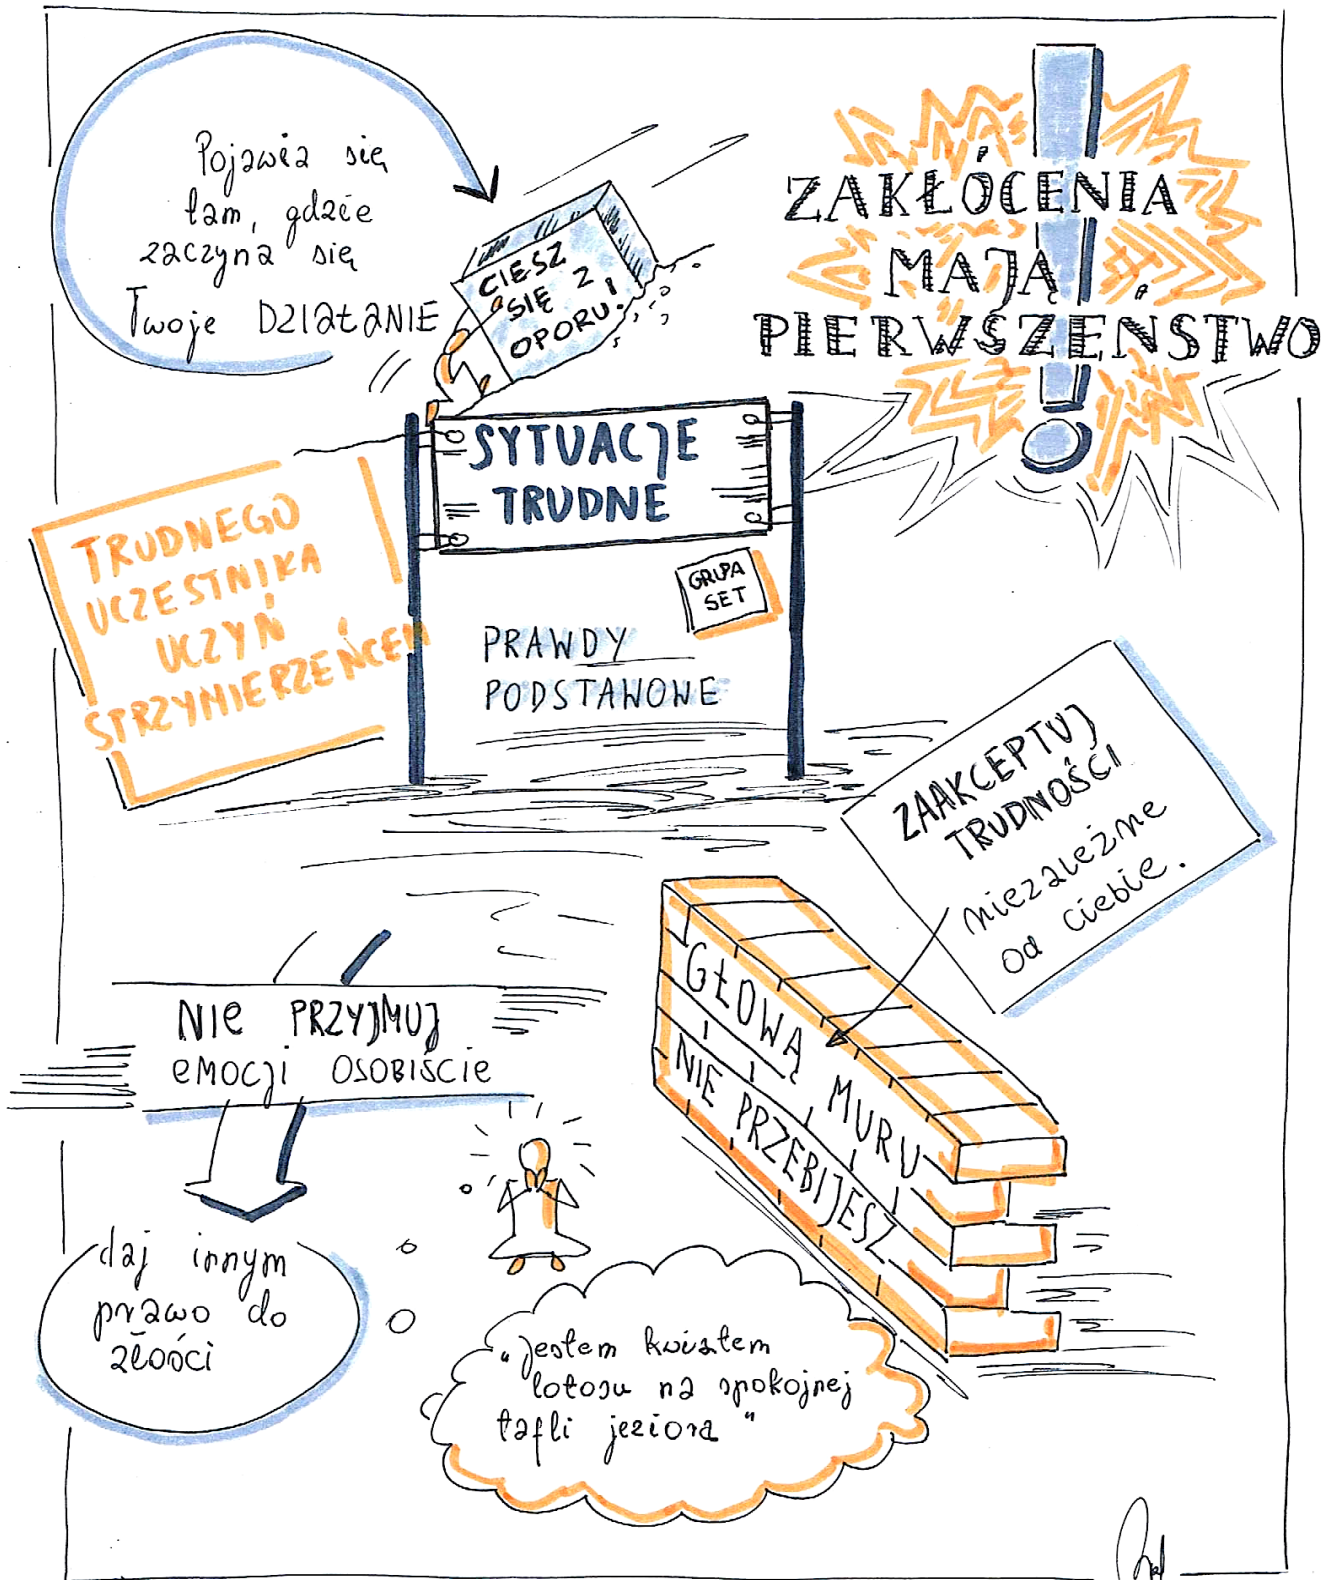 Pojawia się
tam, gdzie
zaczyna się
Twoje DZIAŁANIE
CIESZ
SIĘ Z
OPORU!
ZAKŁÓCENIA
MAJĄ
PIERWSZEŃSTWO
SYTUACJE
TRUDNE
TRUDNEGO
UCZESTNIKA
UCZYŃ
SPRZYMIERZEŃCEM
GRUPA
SET
PRAWDY
PODSTAWOWE
ZAAKCEPTUJ
TRUDNOŚCI
niezależne
od Ciebie.
GŁOWĄ MURU
NIE PRZEBIJESZ
NIE PRZYJMUJ
EMOCJI OSOBIŚCIE
daj innym
prawo do
złości
"Jestem kwiatem
lotosu na spokojnej
tafli jeziora"